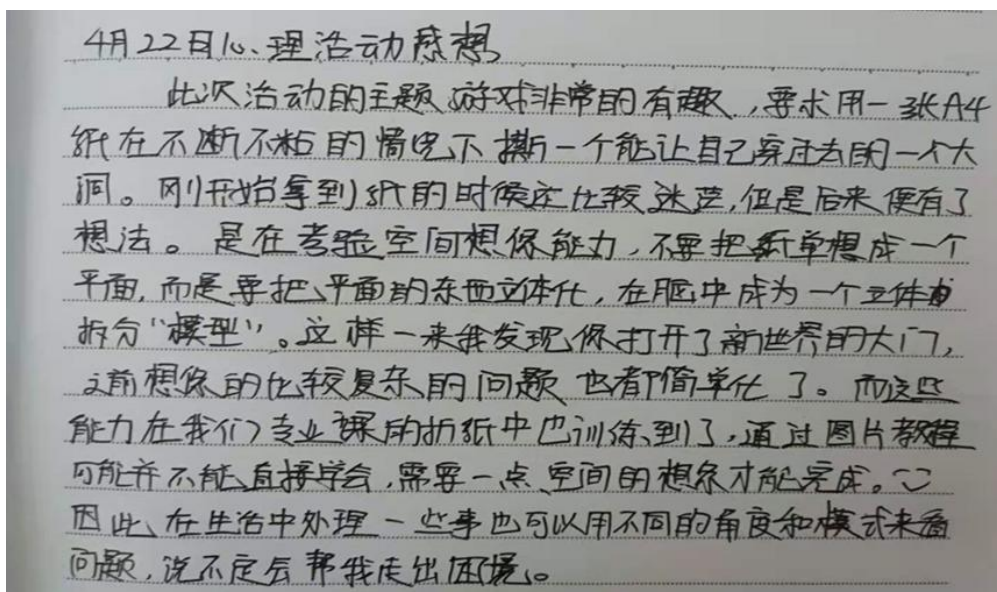 4月22日心理活动感想
此次活动的主题游戏非常的有趣,要求用一张A4
纸在不断不粘的情况下撕一个能让自己穿过去的一个大
洞。刚开始拿到纸的时候还比较迷茫,但是后来便有了
想法。是在考验空间想像能力,不要把纸单想成一个
平面,而是要把平面的东西立体化,在脑中成为一个立体
拆分“模型”。这样一来我发现像打开了新世界的大门,
之前想像的比较复杂的问题也都简单化了。而这些
能力在我们专业课的折纸中也训练到了,通过图片教程
可能并不能直接学会,需要一点空间的想象才能完成。
因此在生活中处理一些事也可以用不同的角度和模式来看
问题,说不定会帮我走出困境。